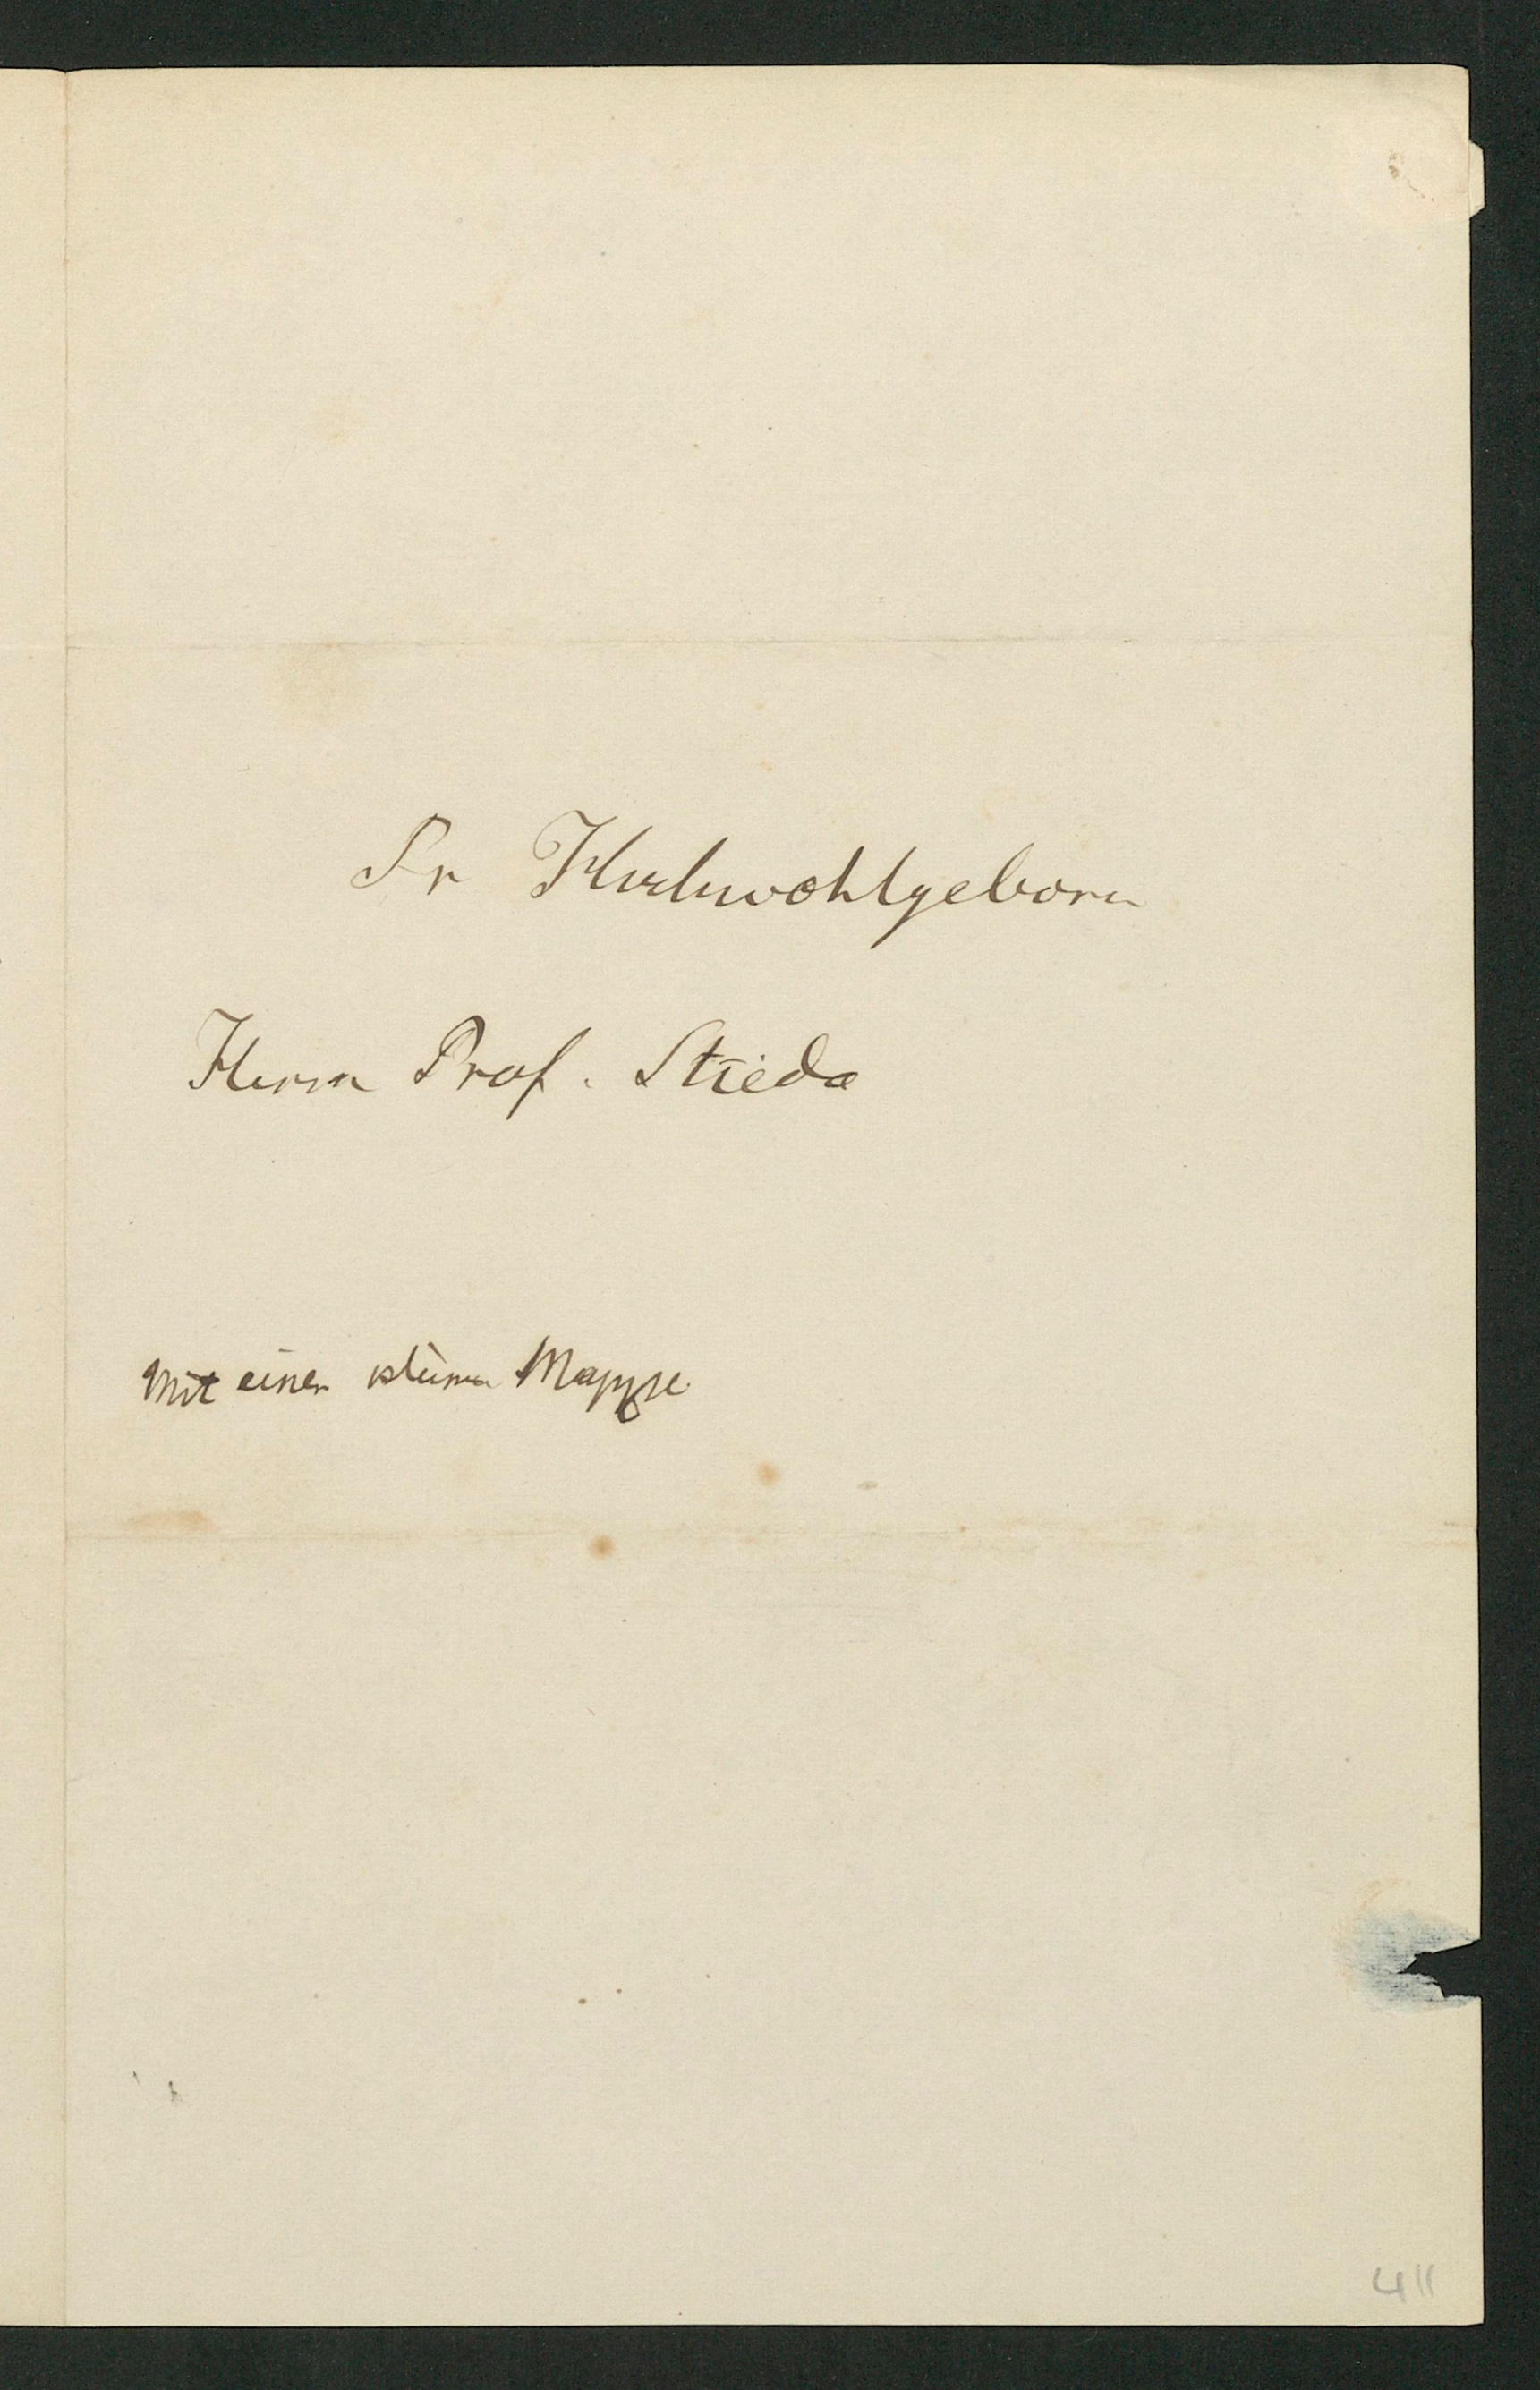 Sr Hochwohlgeborn
Herrn Prof. Stieda
Mit einer kleinen Mappe
411